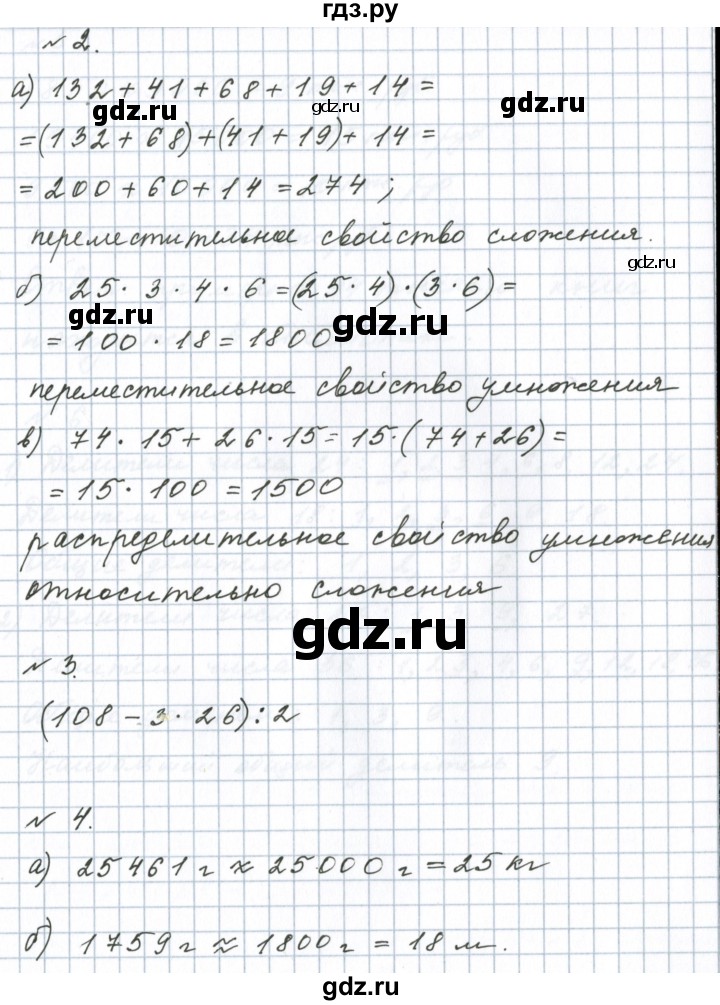 гдз.ру
№ 2.
а) 132 + 41 + 68 + 19 + 14 =
gdz.ru gdz.ru gdz.ru
= (132 + 68) + (41 + 19) + 14 =
= 200 + 60 + 14 = 274 ;
переместительное свойство сложения.
gdz.ru
б) 25 · 3 · 4 · 6 = (25 · 4) · (3 · 6) =
gdz.ru gdz.ru
= 100 · 18 = 1800
переместительное свойство умножения
в) 74 · 15 + 26 · 15 = 15 · (74 + 26) =
= 15 · 100 = 1500
gdz.ru
распределительное свойство умножения
gdz.ru
относительно сложения
gdz.ru
№ 3.
(108 – 3 · 26) : 2
№ 4.
а) 25461 г ≈ 25000 г = 25 кг
б) 1759 г ≈ 1800 г = 18 м.
gdz.ru